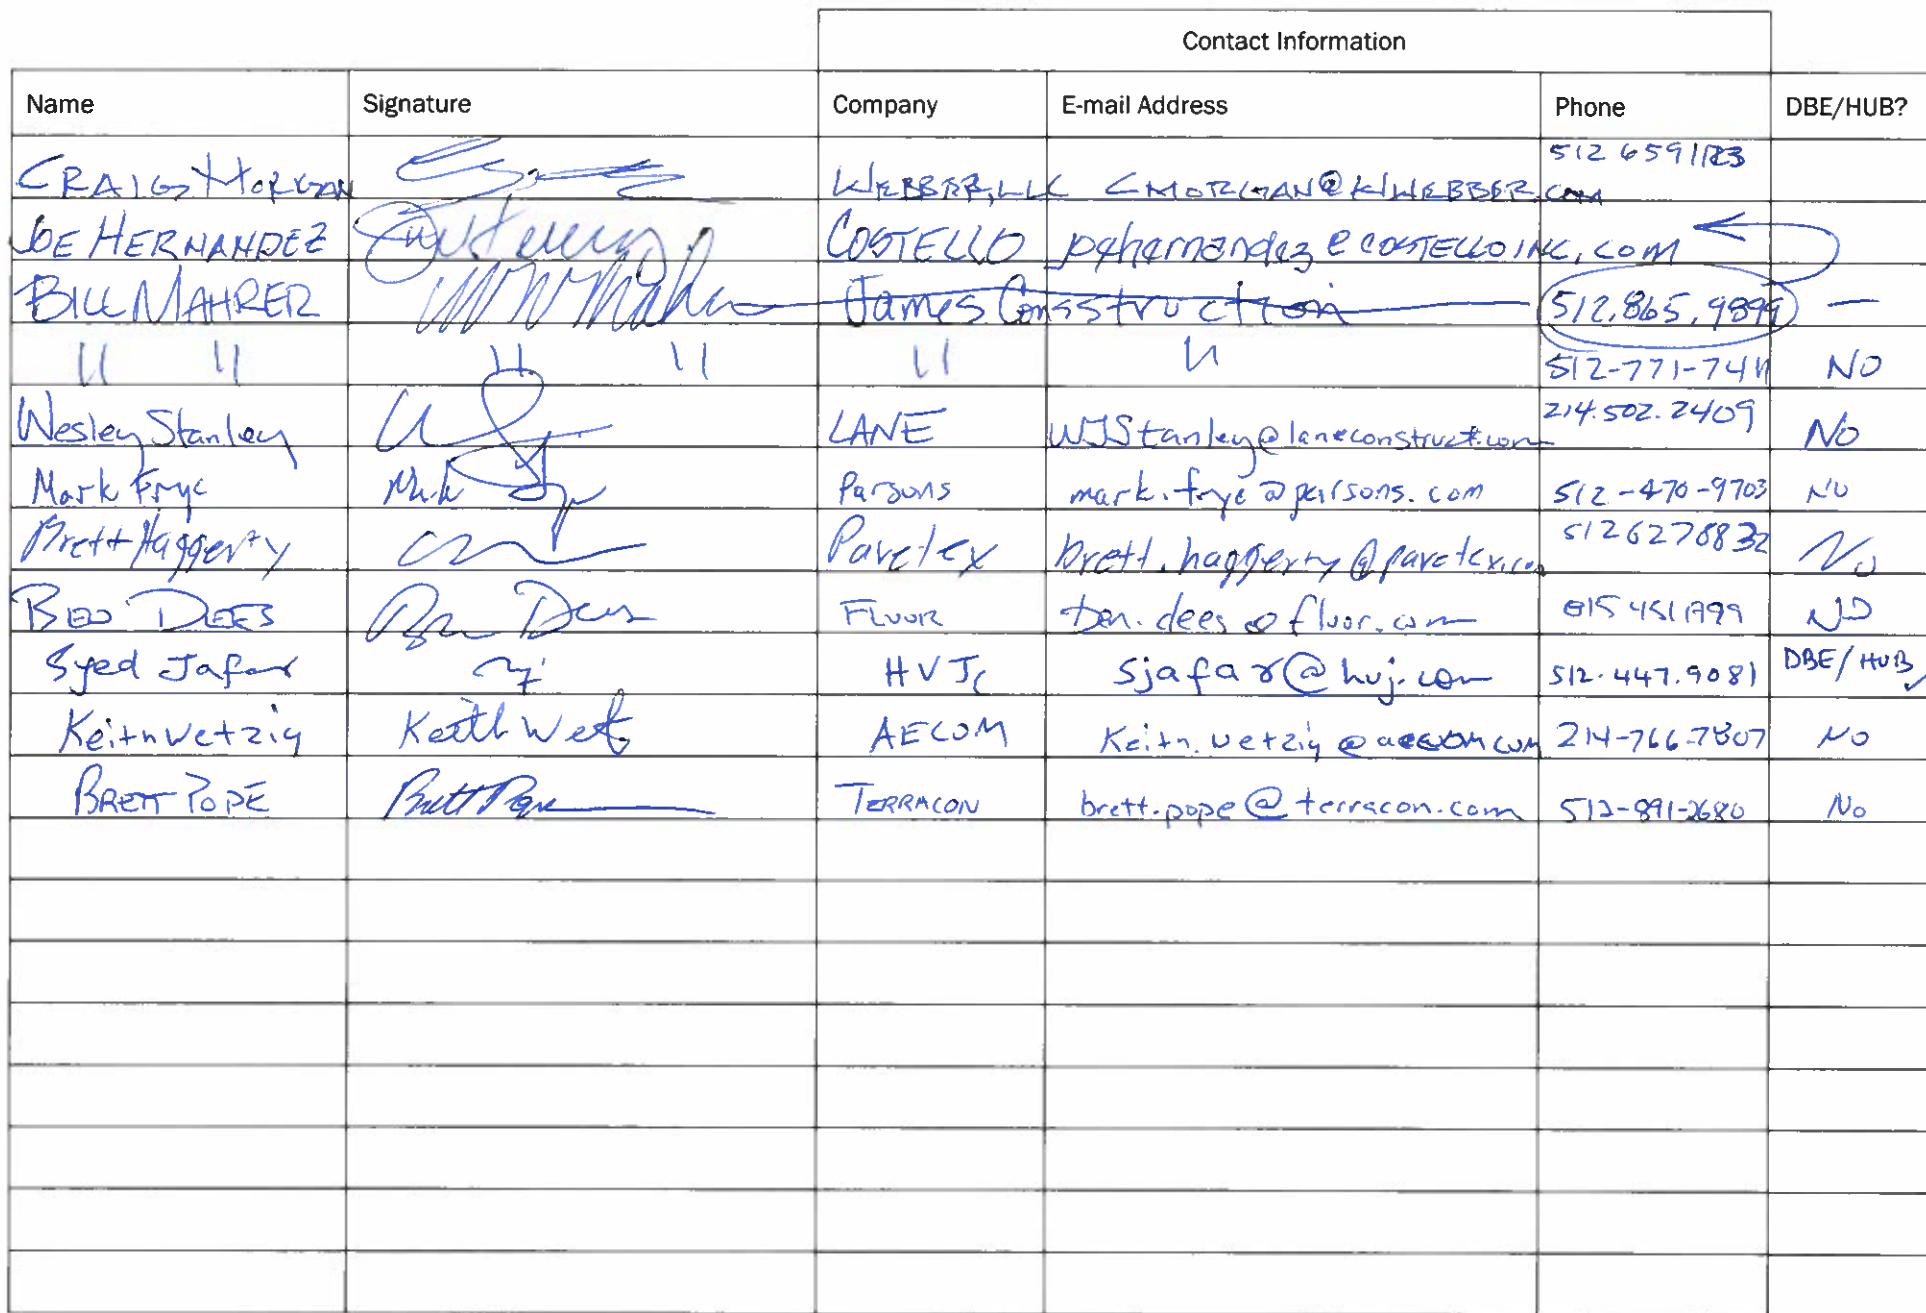 Contact Information
Name Signature Company E-mail Address Phone DBE/HUB?
CRAIG MORGAN WEBBER, LLC CMORGAN@WWEBBER.COM 512 659 1123
JOE HERNANDEZ COSTELLO pehernandez@COSTELLOINC.COM
BILL MAHRER James Consstruction 512.865.9899 —
" " " " " " 512-771-7411 NO
Wesley Stanley LANE WJStanley@laneconstruct.com 214.502.2409 No
Mark Frye Parsons mark.frye@parsons.com 512-470-9703 NO
Brett Haggerty Pavetex brett.haggerty@pavetex.com 512 627 8832 No
BEN DEES Ben Dees FLUOR ben.dees@fluor.com 815 451 1799 NO
Syed Jafar HVJ sjafar@hvj.com 512.447.9081 DBE/HUB
Keith Wetzig Keith Wetz AECOM Keith.wetzig@aecom.com 214-766-7807 NO
BRETT POPE Brett Pope TERRACON brett.pope@terracon.com 512-891-2680 No